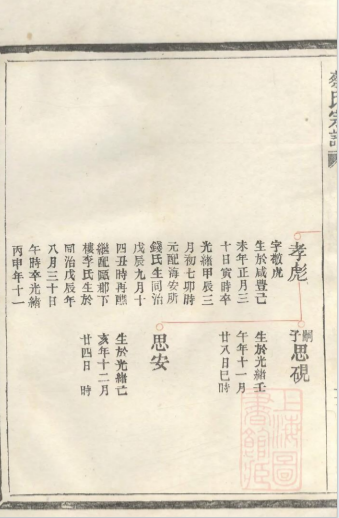 蔡氏宗譜
孝彪
字敬虎
生於咸豊己
未年正月三
十日寅時卒
光緒甲辰三
月初七卯時
元配海安所
錢氏生同治
戊辰九月十
四丑時再醮
繼配區郡下
樓李氏生於
同治戊辰年
八月三十日
午時卒光緒
丙申年十一
嗣子
思硯
生於光緒壬
午年十一月
廿八日巳時
思安
生於光緒己
亥年十二月
廿四日 時
上海圖書館藏